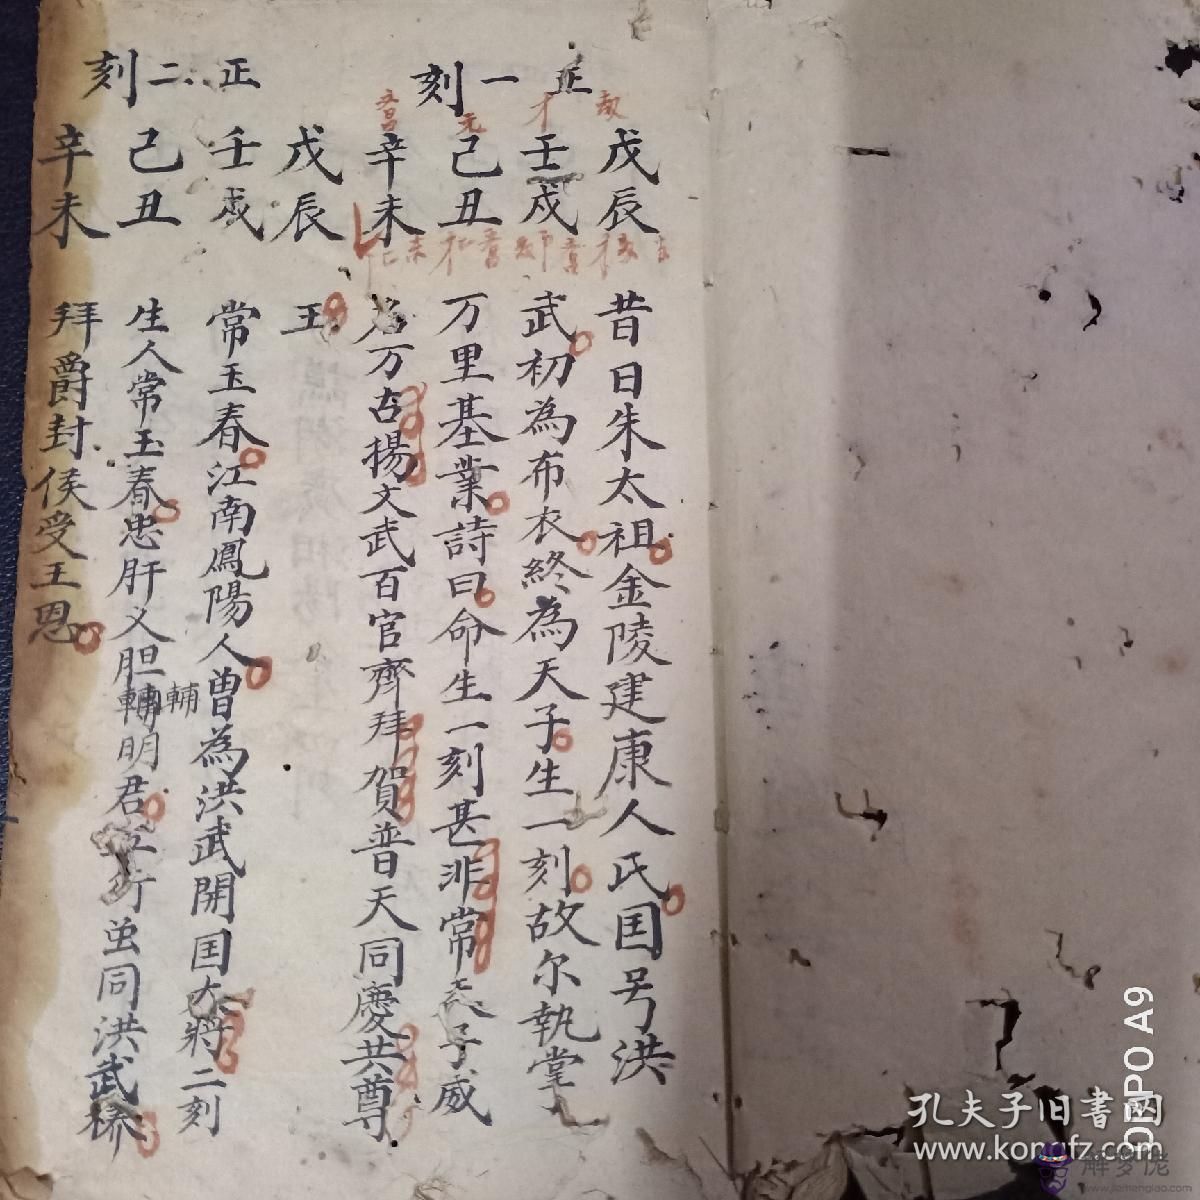 正一刻
戊辰 昔日朱太祖金陵建康人氏囯号洪
壬戌 武初為布衣終為天子生一刻故尔執掌
己丑 万里基業詩曰命生一刻甚非常天子威
辛未 名万古揚文武百官齊拜賀普天同慶共尊
正二刻
戊辰 王
壬戌 常玉春江南鳳陽人曾為洪武開囯大將二刻
己丑 生人常玉春忠肝义胆輔明君五行虽同洪武
輔
辛未 拜爵封侯受王恩
孔夫子旧書网
www.kongfz.com
OPPO A9
解梦佬
www.jiemenglao.com